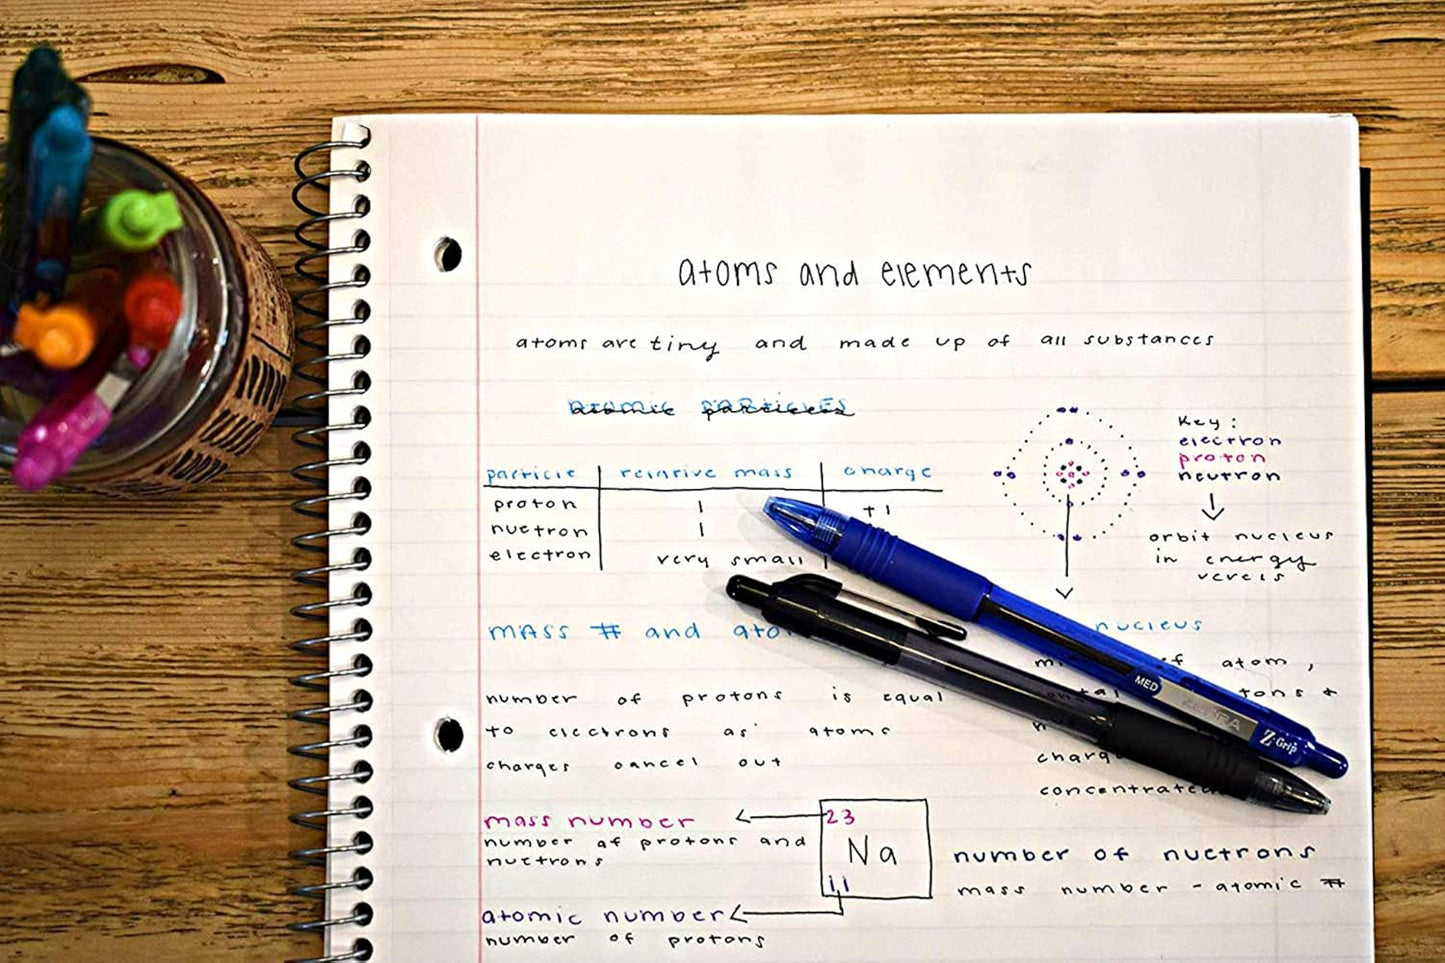 atoms and elements
atoms are tiny and made up of all substances
atomic particles
Key:
electron
proton
neutron
orbit nucleus
in energy
particle relative mass charge
proton 1 +1
nuetron 1
electron very small
MASS # and
nucleus
of atom,
number of protons is equal
to electrons as atoms
charges cancel out
concentrated
MED
ZEBRA
Z-Grip
mass number
number of protons and
nuetrons
23
Na
11
number of nuetrons
mass number - atomic #
atomic number
number of protons